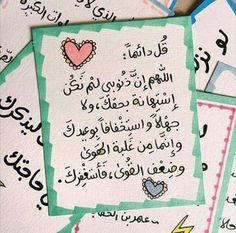 قُل دائماً:
اللهم إنَّ ذنوبي لم تكن
إستهانة بحقك، ولا
جهلاً واستخفافاً بوعدك
وإنما من غلبة الهوىٰ
وضعف القُوىٰ، فأستغفرك.
حاجتك